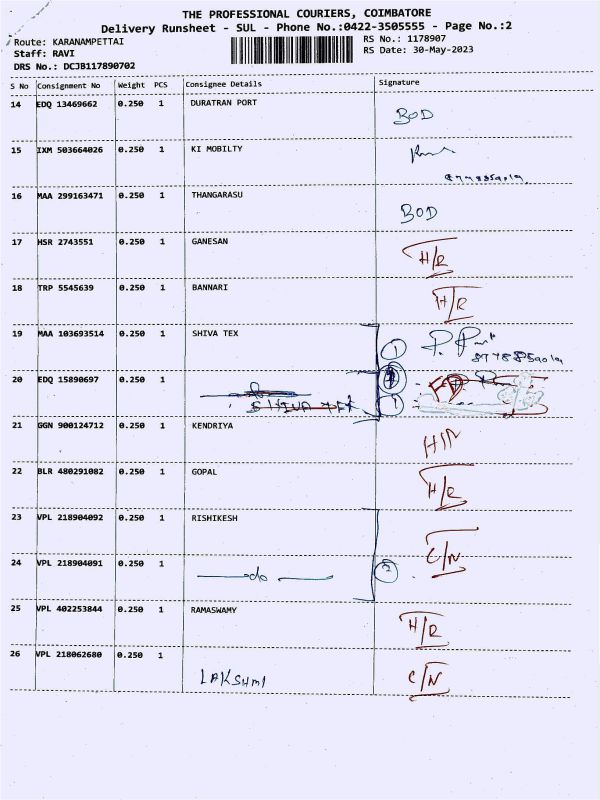 THE PROFESSIONAL COURIERS, COIMBATORE
Delivery Runsheet - SUL - Phone No.:0422-3505555 - Page No.:2
Route: KARANAMPETTAI
RS No.: 1178907
Staff: RAVI
RS Date: 30-May-2023
DRS No.: DCJB117890702
S No Consignment No Weight PCS Consignee Details Signature
14 EDQ 13469662 0.250 1 DURATRAN PORT BOD
15 IXM 503664026 0.250 1 KI MOBILTY
16 MAA 299163471 0.250 1 THANGARASU BOD
17 HSR 2743551 0.250 1 GANESAN H/R
18 TRP 5545639 0.250 1 BANNARI H/R
19 MAA 103693514 0.250 1 SHIVA TEX 1
20 EDQ 15890697 0.250 1
21 GGN 900124712 0.250 1 KENDRIYA
22 BLR 480291082 0.250 1 GOPAL H/R
23 VPL 218904092 0.250 1 RISHIKESH C/N
24 VPL 218904091 0.250 1 do 2
25 VPL 402253844 0.250 1 RAMASWAMY H/R
26 VPL 218062680 0.250 1 LAKSHMI C/N